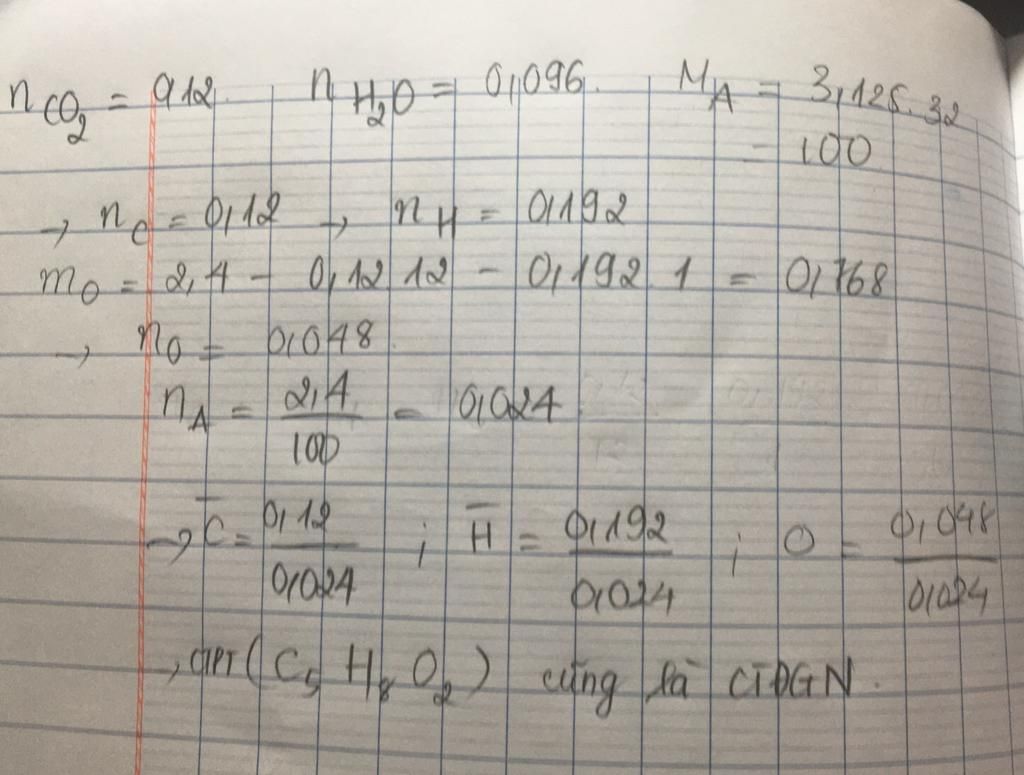 nCO₂ = 0,12. nH₂O = 0,096. MA = 3,125.32
= 100
→ nC = 0,12 → nH = 0,192
mO = 2,4 - 0,12 12 - 0,192 1 = 0,768
→ nO = 0,048.
nA = 2,4/100 = 0,024
→ C̅ = 0,12/0,024 ; H̅ = 0,192/0,024 ; O = 0,048/0,024
→ CTPT (C₅H₈O₂) cũng là CTĐGN.